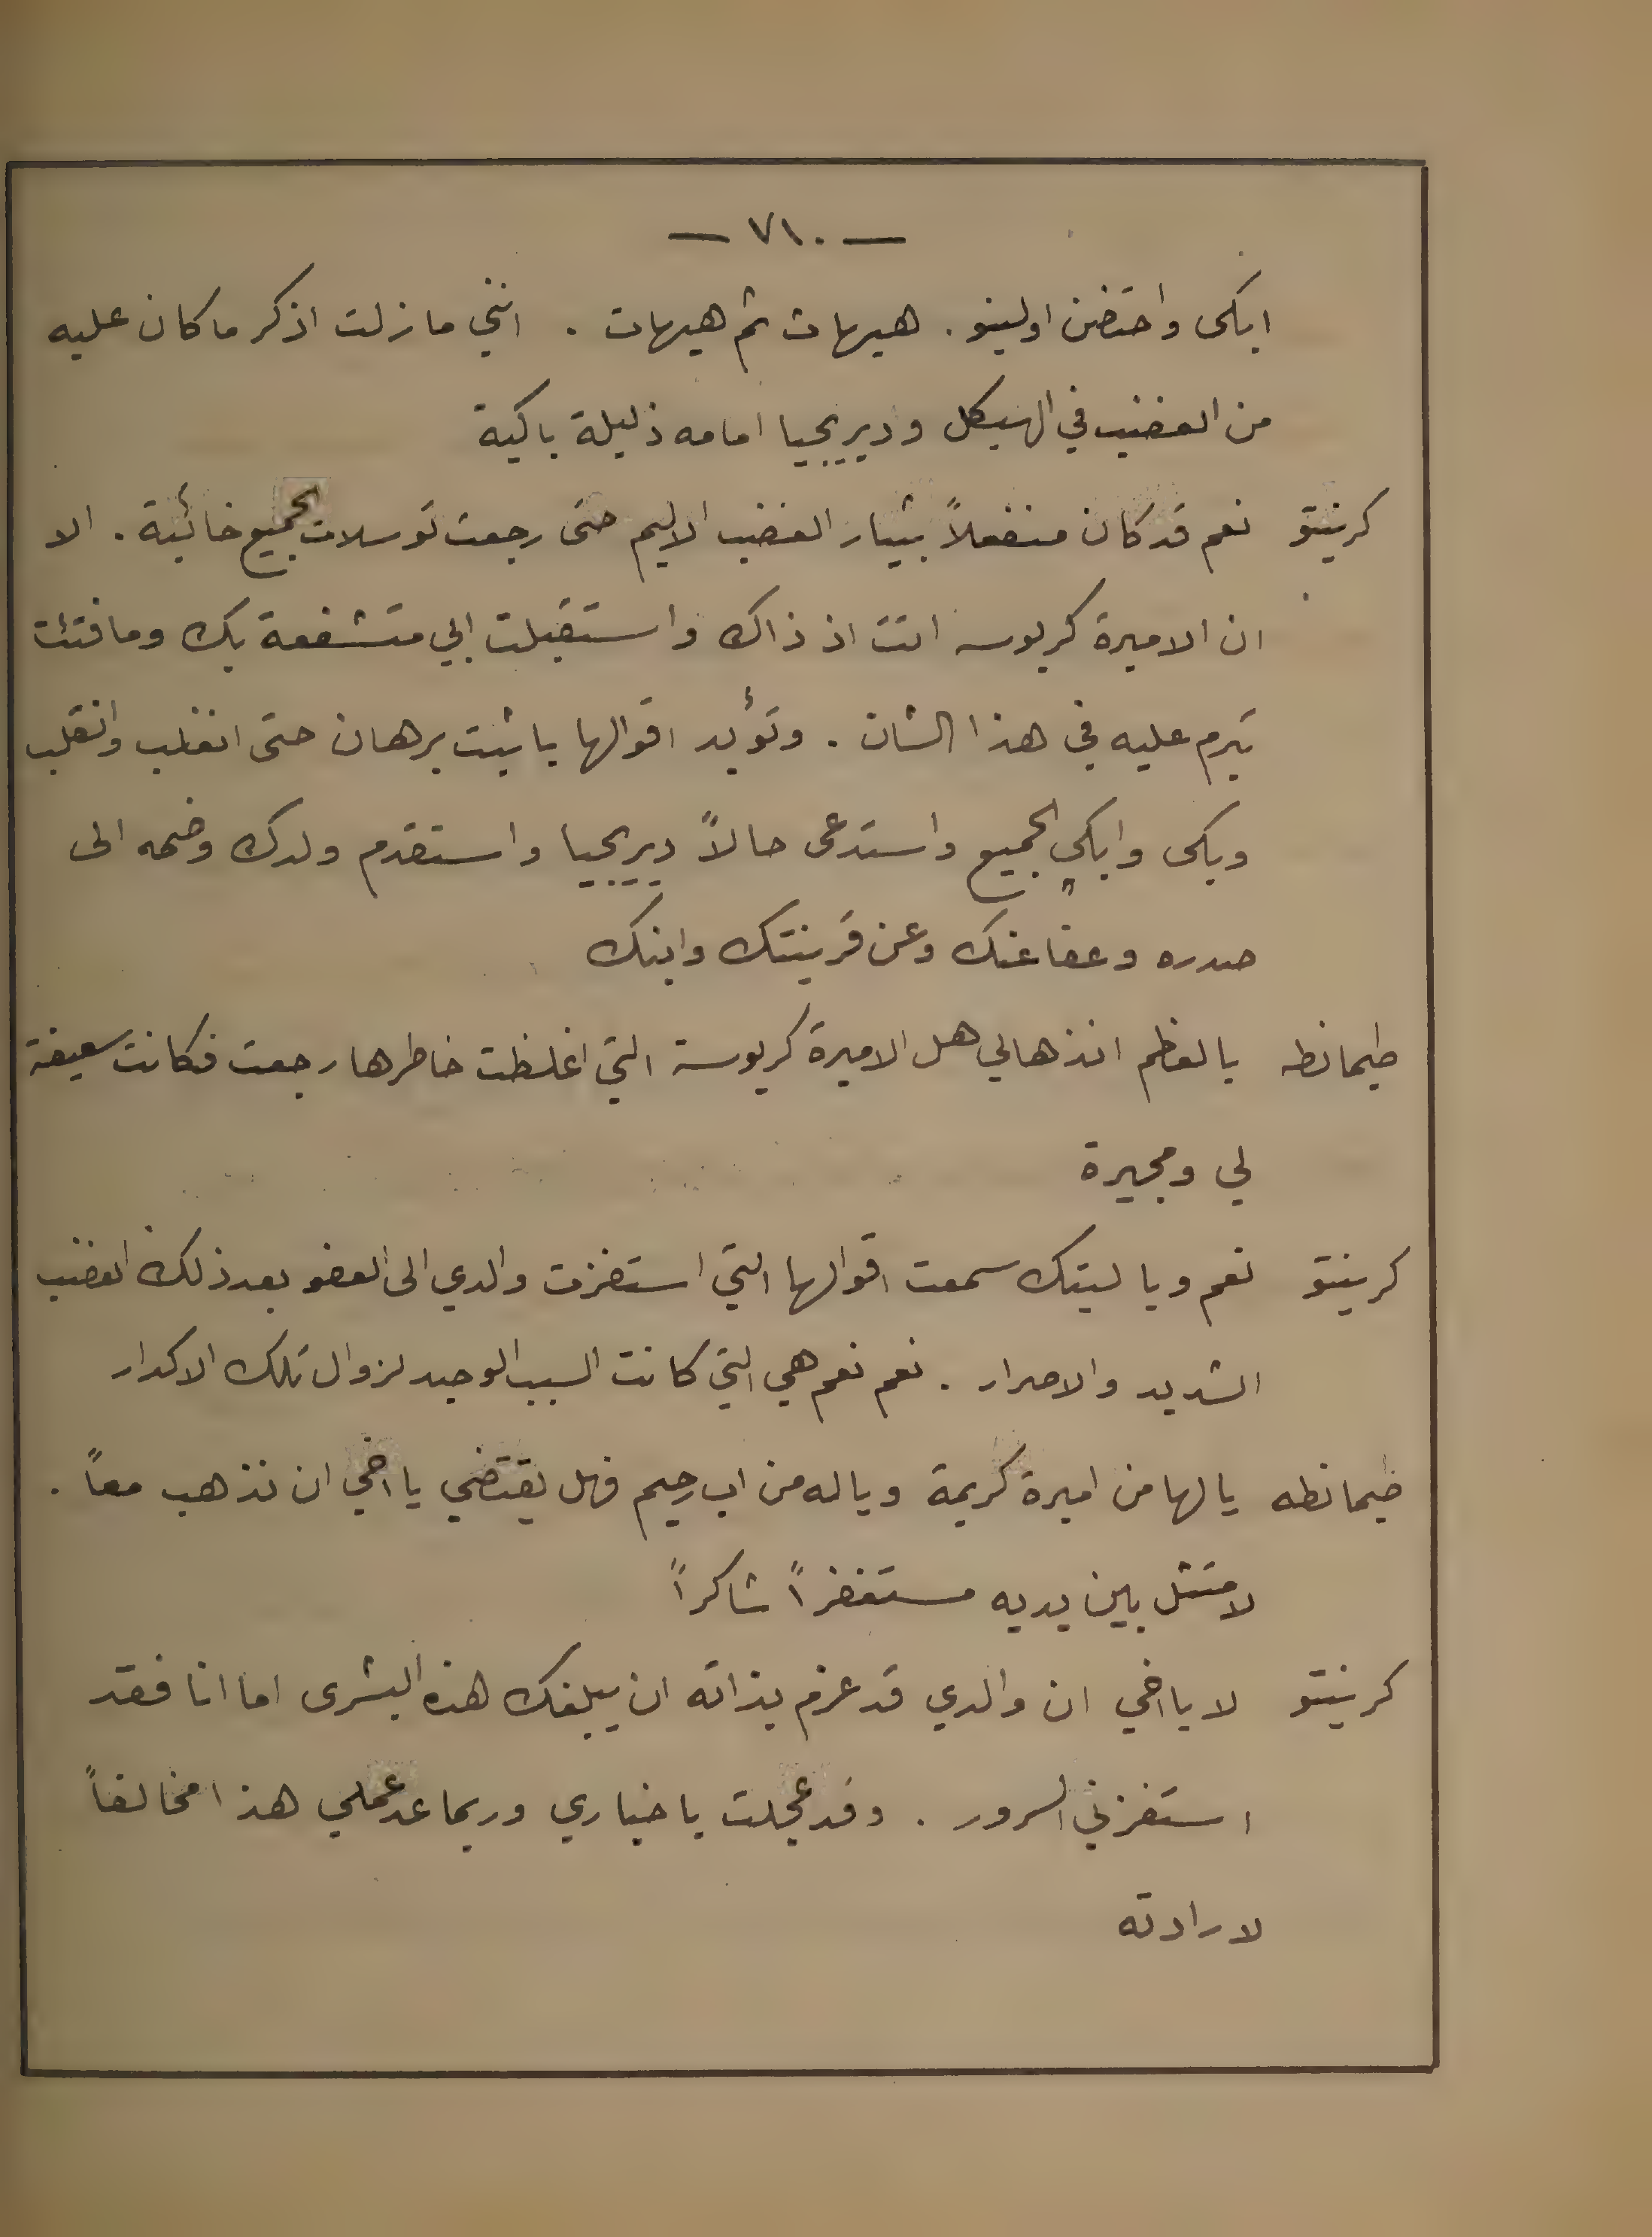 — ٧١٠ —
ابكى واحتضن اولينو . هيهات ثم هيهات . انني مازلت اذكر ما كان عليه
من الغضب في الهيكل وديريحيا امامه ذليلة باكية
كرينتو نعم قد كان منفعلاً بتيار الغضب الاليم حتى رجعت توسلات الجميع خائبة . الا
ان الاميرة كريوسه اتت اذ ذاك واستقبلت ابي متشفعة بك وما فتئت
تبرم عليه في هذا الشان . وتؤيد اقوالها باثبت برهان حتى انغلب وانقلب
وبكى وابكى الجميع واستدعى حالاً ديريحيا واستقدم ولدك وضمه الى
صدره وعفا عنك وعن قرينتك وابنك
طيمانطه يا لعظم انذهالي هل الاميرة كريوسة التي اغلظت خاطرها رجعت فكانت سعيفة
لي ومجيرة
كرينتو نعم ويا ليتك سمعت اقوالها التي استفزت والدي الى العفو بعد ذلك الغضب
الشديد والاصرار . نعم نعم هي التي كانت السبب الوحيد لزوال تلك الاكدار
طيمانطه يا لها من اميرة كريمة ويا له من اب رحيم فهل يقتضي يا اخي ان نذهب معاً .
لامتثل بين يديه مستغفراً شاكراً
كرينتو لا يا اخي ان والدي قد عزم بذاته ان يبلغك هذه البشرى اما انا فقد
استفزني السرور . وقد عجلت باخباري وربما عد عملي هذا مخالفاً
لارادته